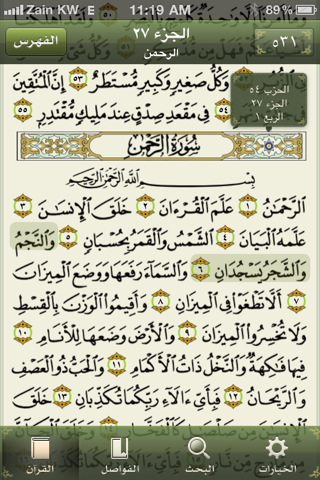 Zain KW E 11:19 AM 89%
الفهرس الجزء ٢٧ ٥٣١
الرحمن
الحزب ٥٤
الجزء ٢٧
الربع ١
۝٥٢ وَكُلُّ صَغِيرٍ وَكَبِيرٍ مُّسْتَطَرٌ ۝٥٣ إِنَّ الْمُتَّقِينَ
۝٥٤ فِي مَقْعَدِ صِدْقٍ عِندَ مَلِيكٍ مُّقْتَدِرٍ ۝٥٥
سُورَةُ الرَّحْمَٰن
بِسْمِ اللَّهِ الرَّحْمَٰنِ الرَّحِيمِ
الرَّحْمَٰنُ ۝١ عَلَّمَ الْقُرْءَانَ ۝٢ خَلَقَ الْإِنسَٰنَ ۝٣
عَلَّمَهُ الْبَيَانَ ۝٤ الشَّمْسُ وَالْقَمَرُ بِحُسْبَانٍ ۝٥ وَالنَّجْمُ
وَالشَّجَرُ يَسْجُدَانِ ۝٦ وَالسَّمَآءَ رَفَعَهَا وَوَضَعَ الْمِيزَانَ
۝٧ أَلَّا تَطْغَوْا فِي الْمِيزَانِ ۝٨ وَأَقِيمُوا الْوَزْنَ بِالْقِسْطِ
وَلَا تُخْسِرُوا الْمِيزَانَ ۝٩ وَالْأَرْضَ وَضَعَهَا لِلْأَنَامِ ۝١٠
فِيهَا فَٰكِهَةٌ وَالنَّخْلُ ذَاتُ الْأَكْمَامِ ۝١١ وَالْحَبُّ ذُو الْعَصْفِ
وَالرَّيْحَانُ ۝١٢ فَبِأَيِّ ءَالَآءِ رَبِّكُمَا تُكَذِّبَانِ ۝١٣ خَلَقَ
الْإِنسَٰنَ مِن صَلْصَٰلٍ كَالْفَخَّارِ ۝١٤ وَخَلَقَ الْجَآنَّ
القرآن الفواصل البحث الخيارات